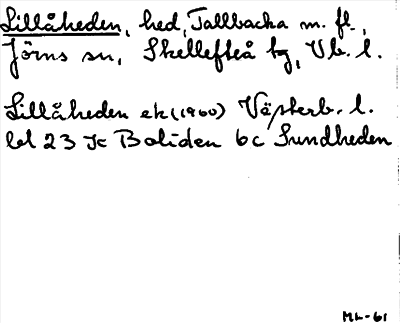 Lillåheden, hed, Tallbacka m. fl.,
Jörns sn, Skellefteå tg, Vb. l.
Lillåheden ek (1960) Västerb. l.
bl 23 Jc Boliden 6c Sundheden
ML-61